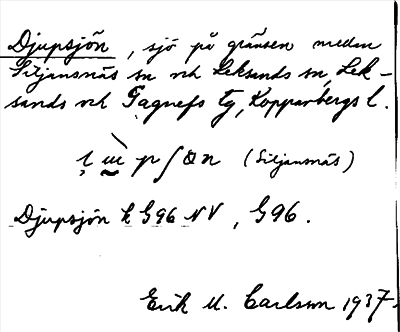 Djupsjön, sjö på gränsen mellan
Siljansnäs sn och Leksands sn, Lek-
sands och Gagnefs tg, Kopparbergs l.
p ʃ n (Siljansnäs)
Djupsjön k G96 NV, G96.
Erik M. Carlsson 1937.